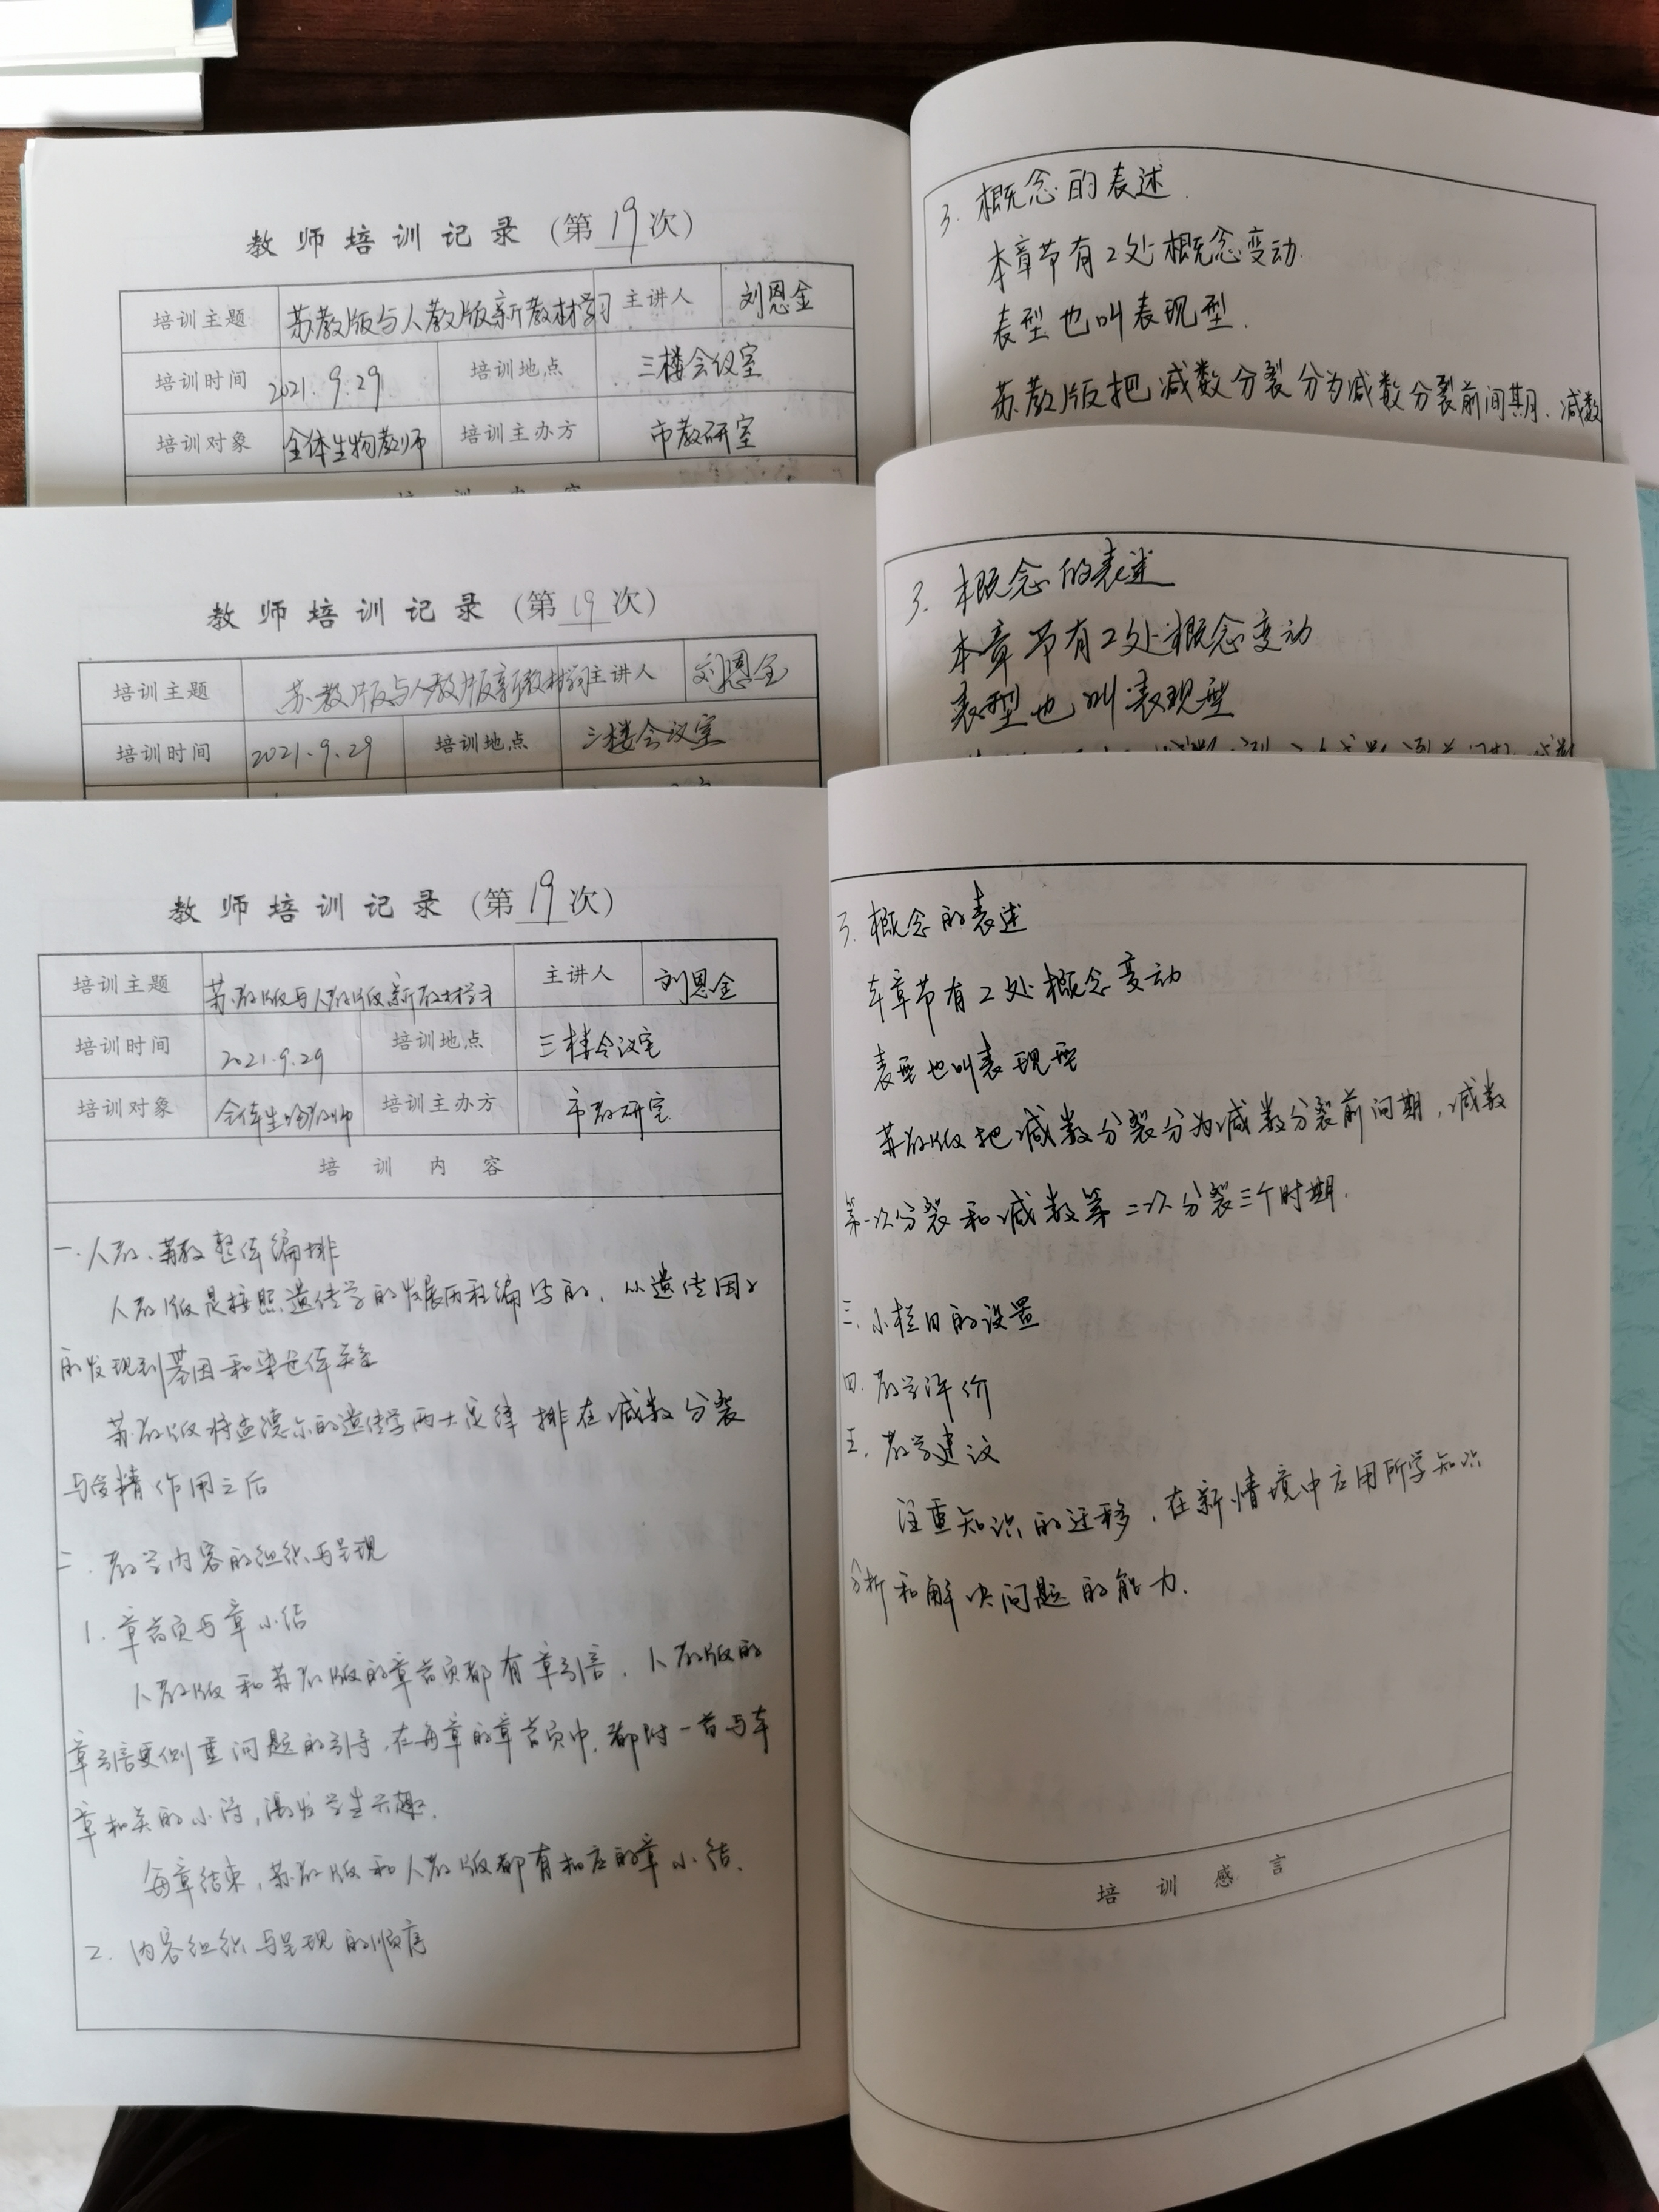 教师培训记录（第19次）
培训主题 苏教版与人教版新教材学习 主讲人 刘恩金
培训时间 2021.9.29 培训地点 三楼会议室
培训对象 全体生物教师 培训主办方 市教研室
培训内容
3. 概念的表述.
本章节有2处概念变动.
表型也叫表现型.
苏教版把减数分裂分为减数分裂前间期、减数
教师培训记录（第19次）
培训主题 苏教版与人教版新教材学习 主讲人 刘恩金
培训时间 2021.9.29 培训地点 三楼会议室
3. 概念的表述
本章节有2处概念变动
表型也叫表现型
教师培训记录（第19次）
培训主题 苏教版与人教版新教材学习 主讲人 刘恩金
培训时间 2021.9.29 培训地点 三楼会议室
培训对象 全体生物教师 培训主办方 市教研室
培训内容
一.人教、苏教整体编排
人教版是按照遗传学的发展历程编写的，从遗传因子
的发现到基因和染色体关系
苏教版将孟德尔的遗传学两大定律排在减数分裂
与受精作用之后
二.教学内容的组织与呈现
1. 章首页与章小结
人教版和苏教版的章首页都有章引言，人教版的
章引言更侧重问题的引导，在每章的章首页中，都附一首与本
章相关的小诗，激发学生兴趣.
每章结束，苏教版和人教版都有相应的章小结.
2. 内容组织与呈现的顺序
3. 概念的表述
本章节有2处概念变动
表型也叫表现型
苏教版把减数分裂分为减数分裂前间期，减数
第一次分裂和减数第二次分裂三个时期.
三.小栏目的设置
四.教学评价
五.教学建议
注重知识的迁移，在新情境中应用所学知识
分析和解决问题的能力.
培训感言